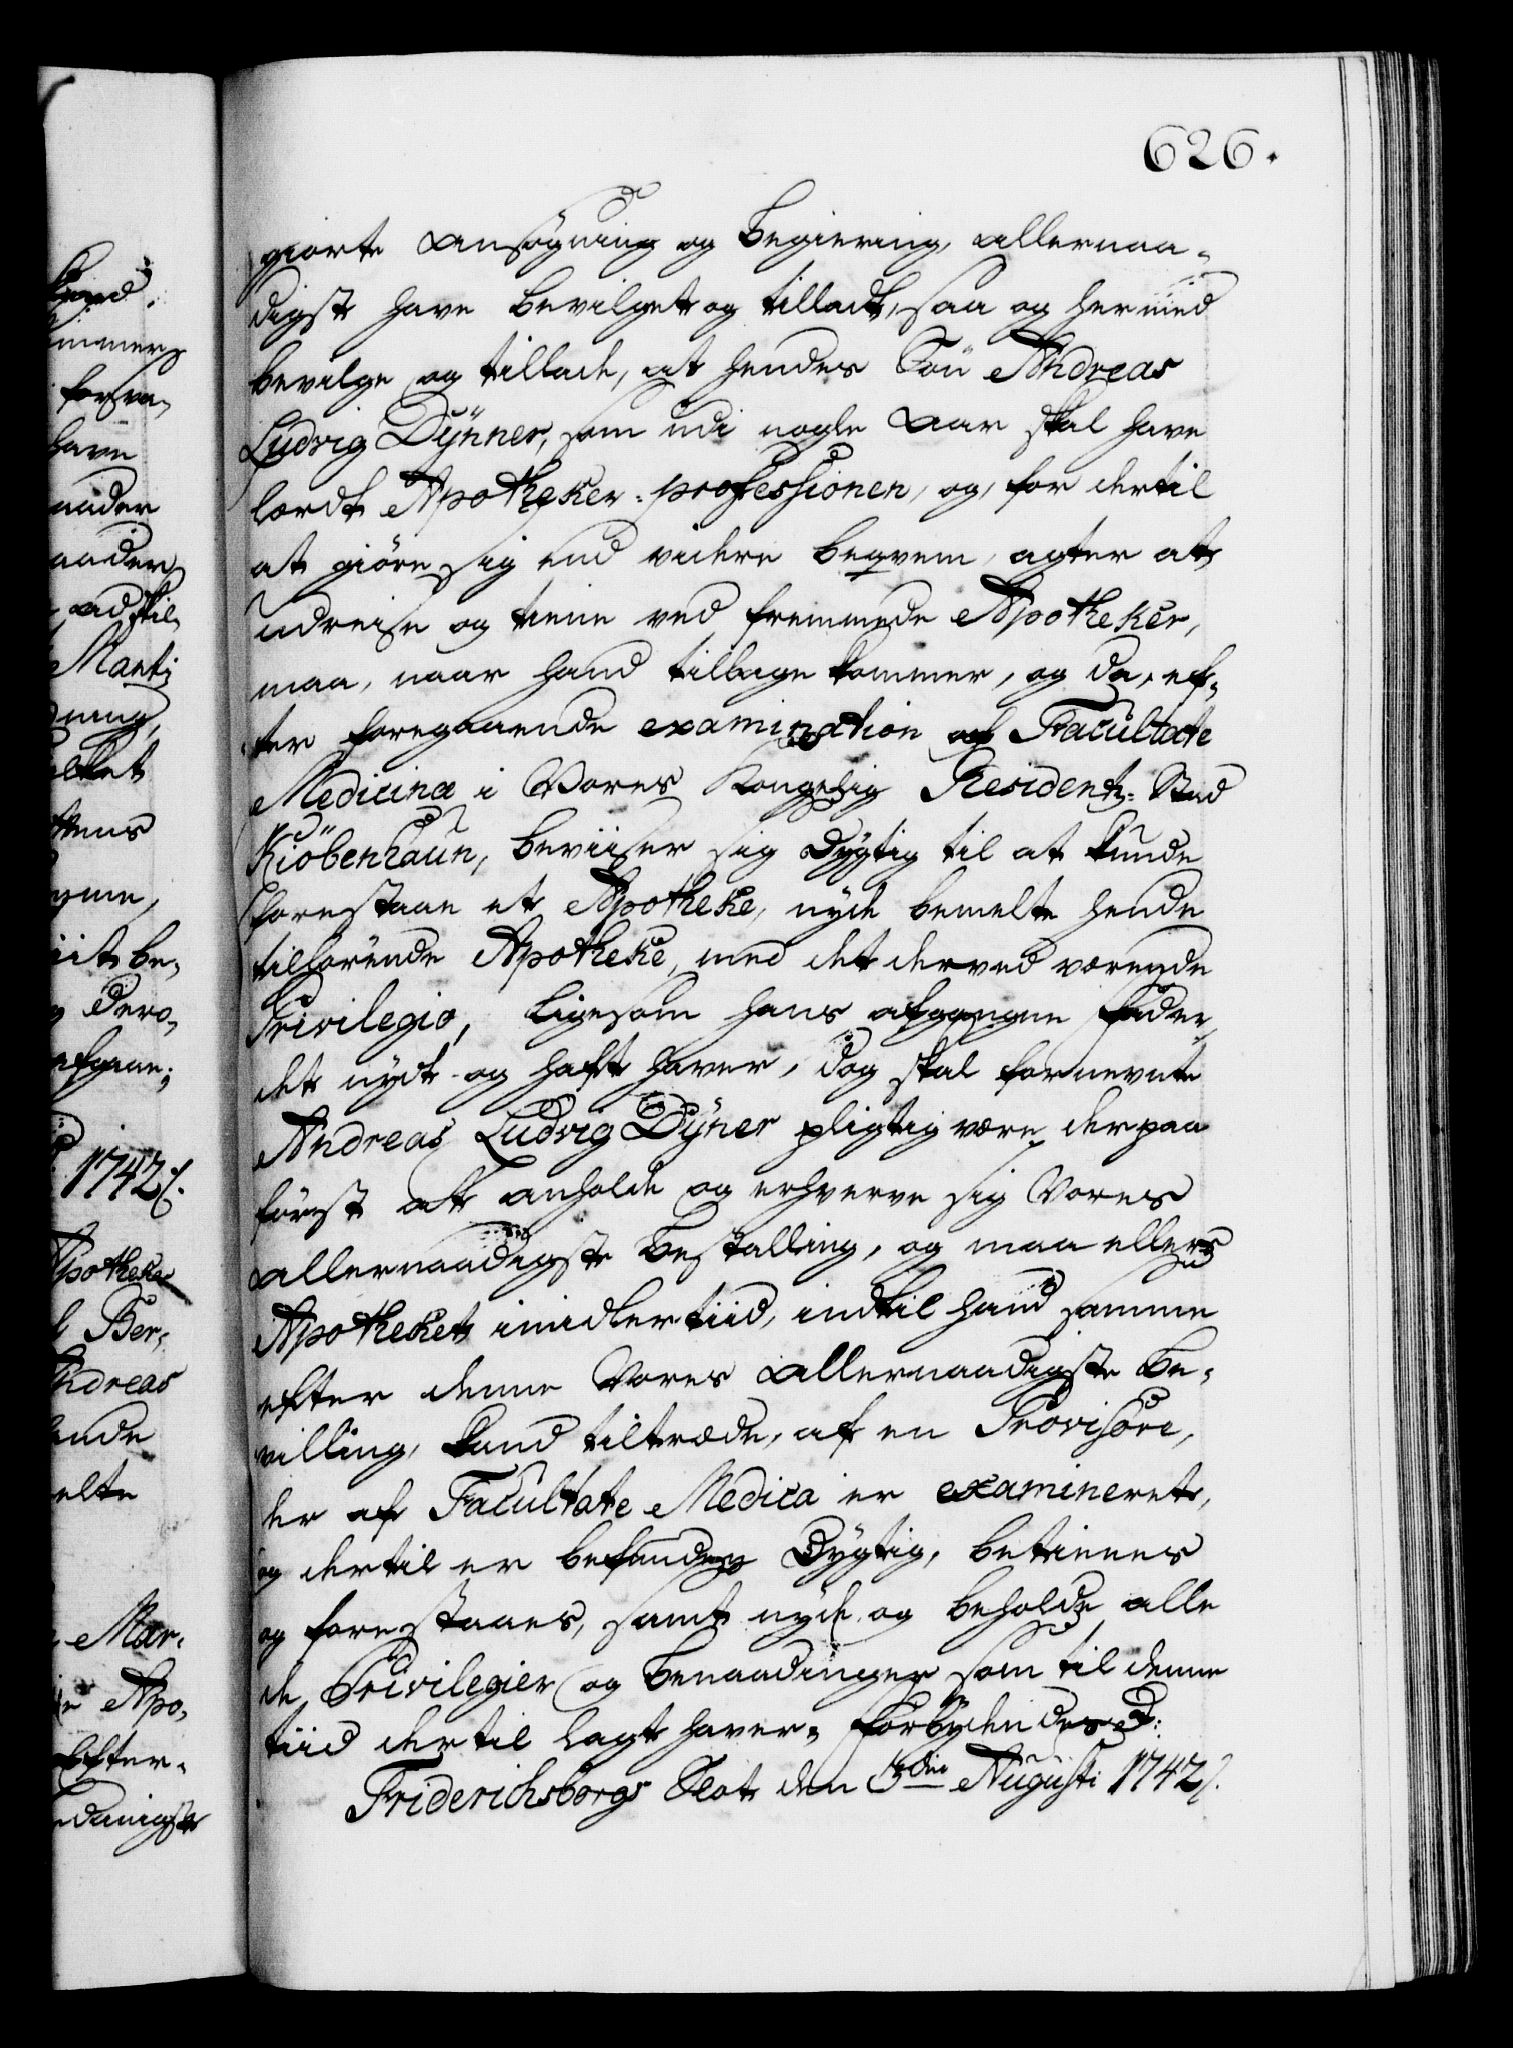 626.
giorte Ansøgning og Begiering, allernaa-
digst have bevilget og tilladt, saa og hermed
bevilge og tillade, at hendes Søn Andreas
Ludvig Dÿnner, som udi nogle Aar skal have
lærdt Apotheker-professionen, og, for dertil
at giøre sig end videre beqvem, agter at
udreise og tiene ved fremmede Apotheker,
maa, naar hand tilbage kommer, og da, ef-
ter foregaaende examination af Facultate
Medicina i Vores Kongelig Residentz-Stad
Kiöbenhaun, beviiser sig dygtig til at kunde
forestaae et Apotheke, nyde bemelte hende
tilhørende Apotheke, med det derved værende
Privilegio, ligesom hans afgangne Fader
det nydt og haft haver, dog skal fornevnte
Andreas Ludvig Dÿner pligtig være derpaa
først at anholde og erhverve sig Vores
allernaadigste Bestalling, og maa ellers
Apotheket imidlertiid, indtil hand samme
efter denne Vores allernaadigste Be-
villing, kand tiltræde, af en Provisore,
der af Facultate Medica er examineret,
og dertil er befunden dygtig, betienes
og forestaaes, samt nyde og beholde alle
de Privilegier og Benaadinger som til denne
tiid dertil lagt haver, Forbydendes d:
Friderichsborgs Slot den 3die Augusti 1742/.
Mar-
Apo-
efter-
1742/.
Apotheker
Ber-
Andreas